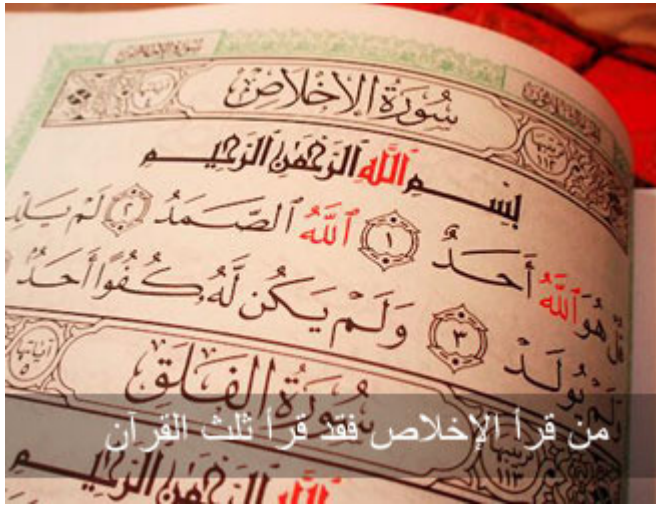 سُورَةُ الإِخْلَاصِ
بِسْمِ ٱللَّهِ ٱلرَّحْمَٰنِ ٱلرَّحِيمِ
هُوَ ٱللَّهُ أَحَدٌ ١ ٱللَّهُ ٱلصَّمَدُ ٢ لَمْ يَلِدْ
وَلَمْ يُولَدْ ٣ وَلَمْ يَكُن لَّهُۥ كُفُوًا أَحَدٌ
سُورَةُ الْفَلَقِ
آياتها ٥
من قرأ الإخلاص فقد قرأ ثلث القرآن
ٱللَّهِ ٱلرَّحْمَٰنِ ٱلرَّحِيمِ
١١٣